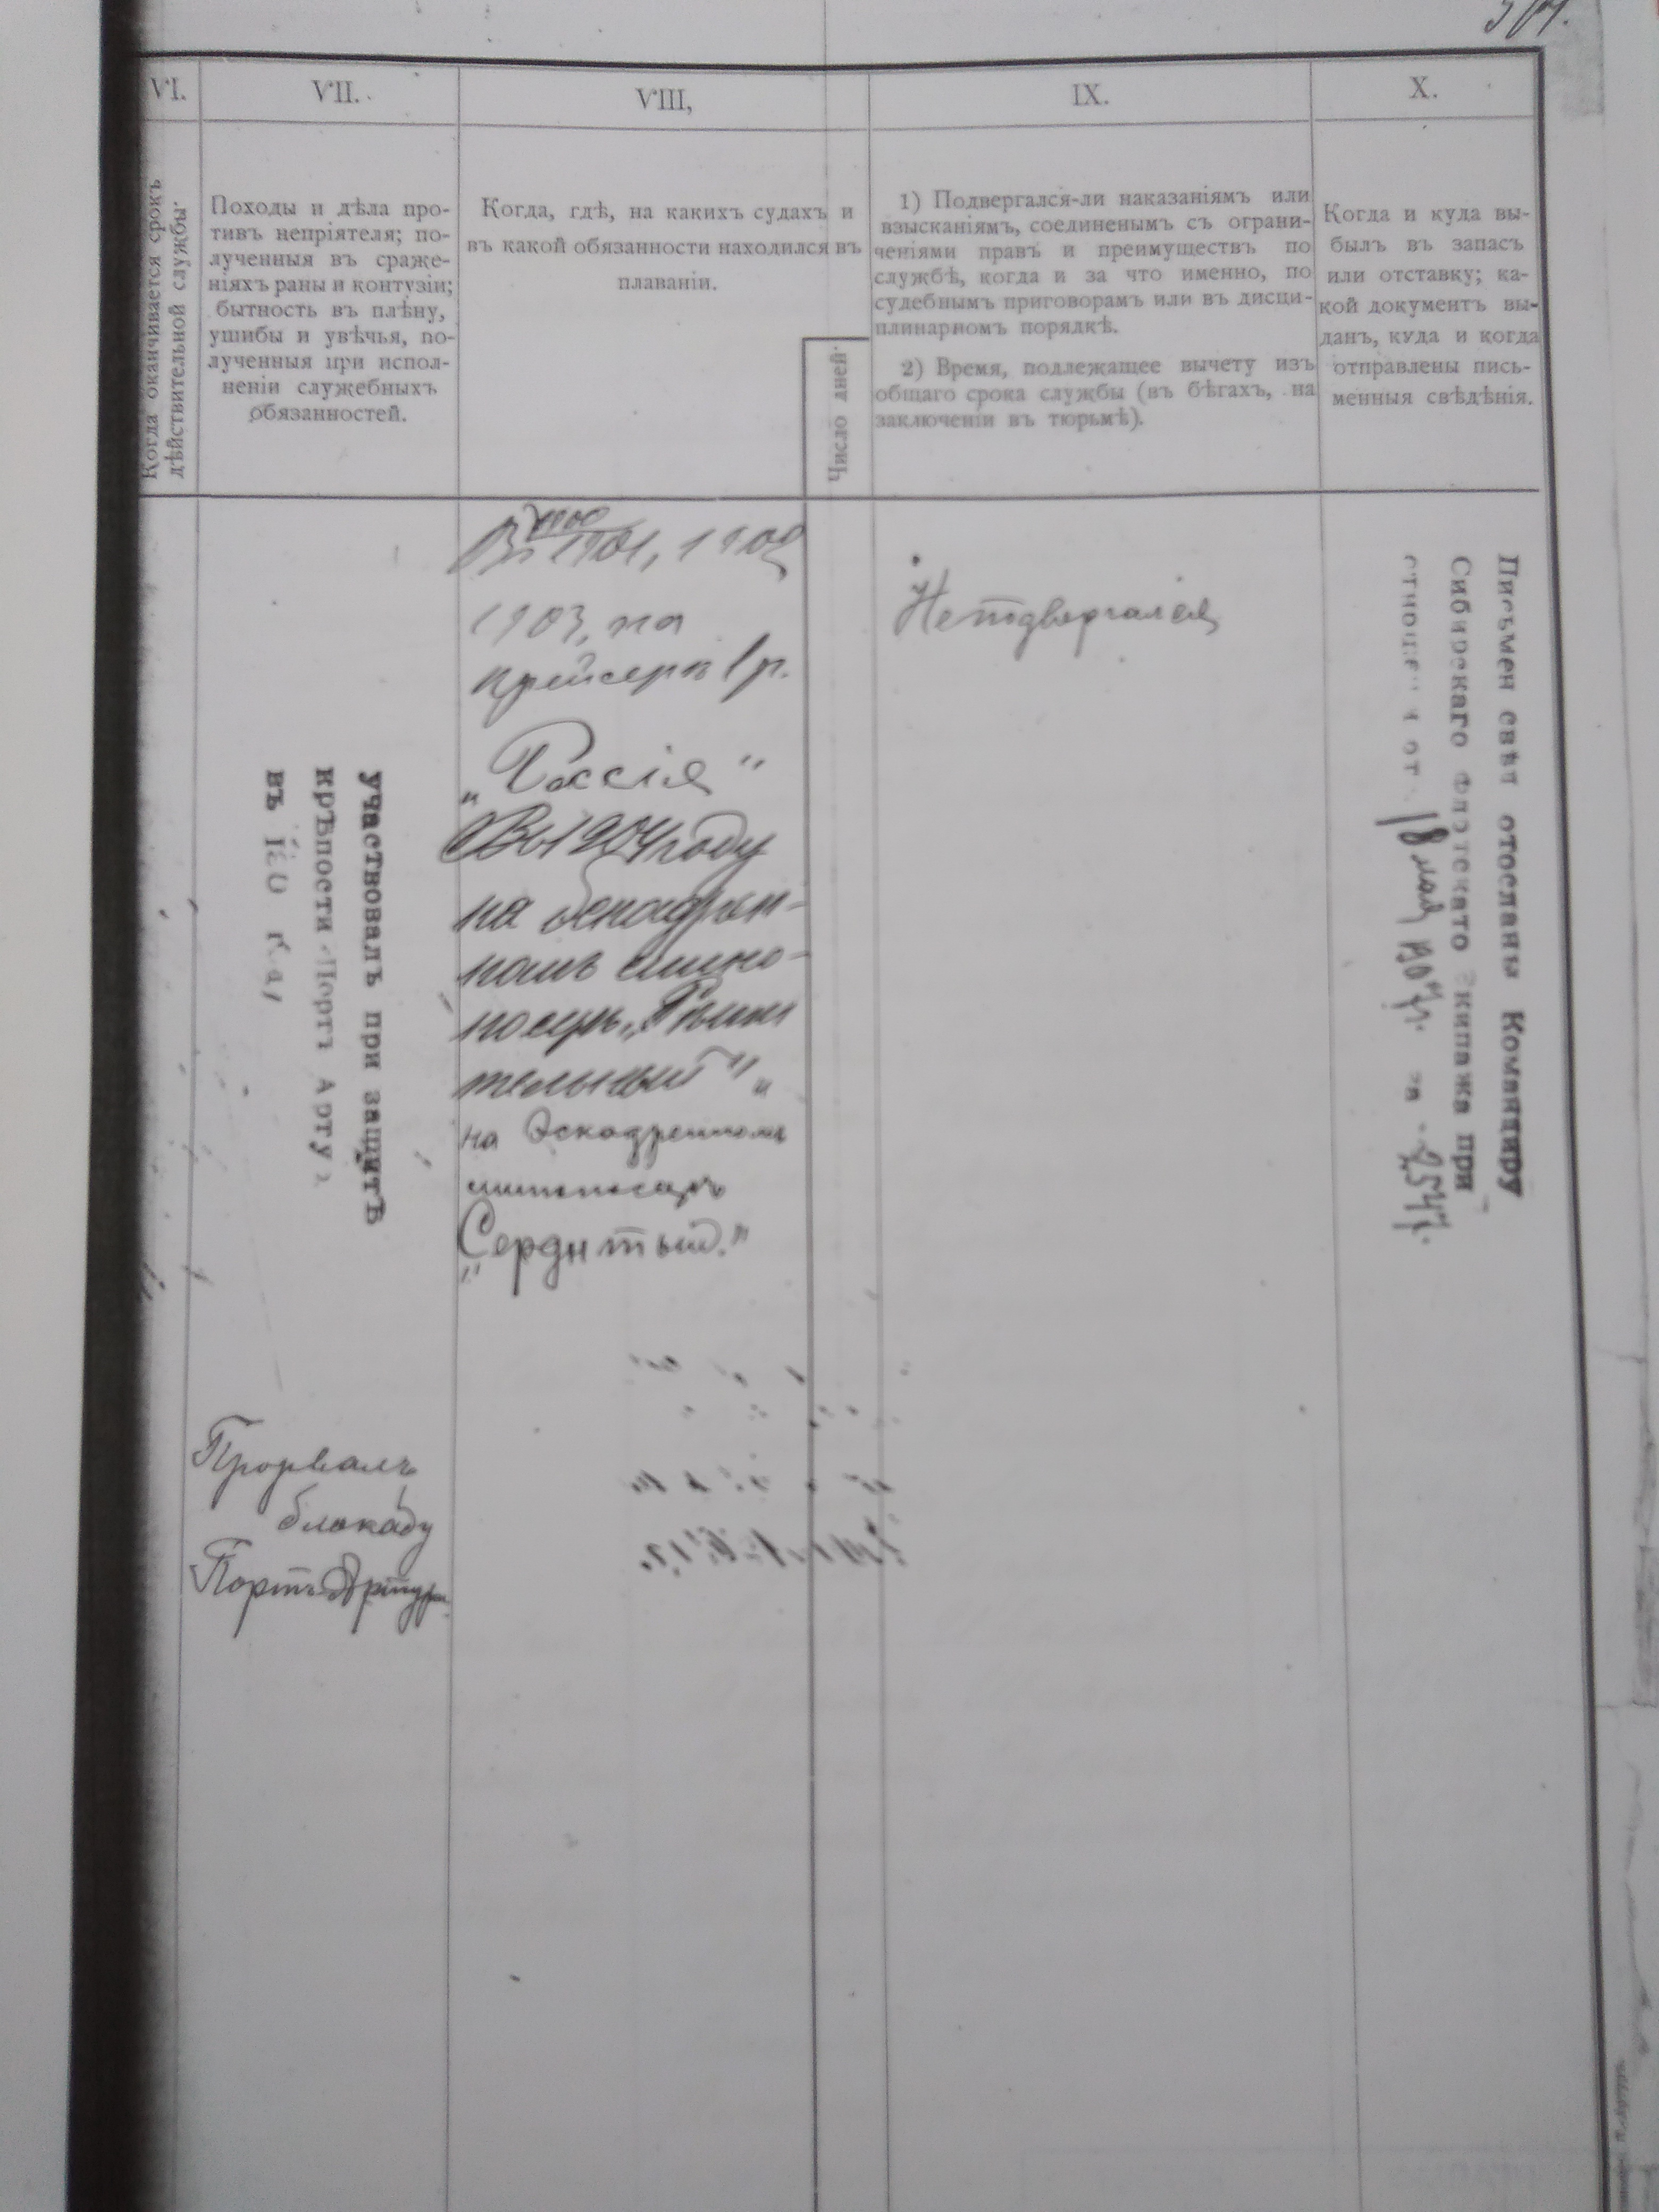 VI.
VII.
VIII,
IX.
X.
Когда оканчивается срокъ
дѣйствительной службы.
Походы и дѣла про-
тивъ непріятеля; по-
лученныя въ сраже-
ніяхъ раны и контузіи;
бытность въ плѣну,
ушибы и увѣчья, по-
лученныя при испол-
неніи служебныхъ
обязанностей.
Когда, гдѣ, на какихъ судахъ и
въ какой обязанности находился въ
плаваніи.
Число дней.
1) Подвергался-ли наказаніямъ или
взысканіямъ, соединенымъ съ ограни-
ченіями правъ и преимуществъ по
службѣ, когда и за что именно, по
судебнымъ приговорамъ или въ дисци-
плинарномъ порядкѣ.
2) Время, подлежащее вычету изъ
общаго срока службы (въ бѣгахъ, на
заключеніи въ тюрьмѣ).
Когда и куда вы-
былъ въ запасъ
или отставку; ка-
кой документъ вы-
данъ, куда и когда
отправлены пись-
менныя свѣдѣнія.
участвовалъ при защитѣ
крѣпости Портъ Арту
въ
Прорвалъ
блокаду
Портъ-Артура
1900
Въ 1901, 1902
1903, на
крейсерѣ 1 р.
„Россія"
Въ 1904 году
на эскадрен-
номъ мино-
носцѣ „Рѣши
тельный" „
на Эскадренномъ
миноносцѣ
„Сердитый."
Неподвергался
Письмен свѣд отосланы Командиру
Сибирскаго Флотскато Экипажа при
от 18 мая за 2547.